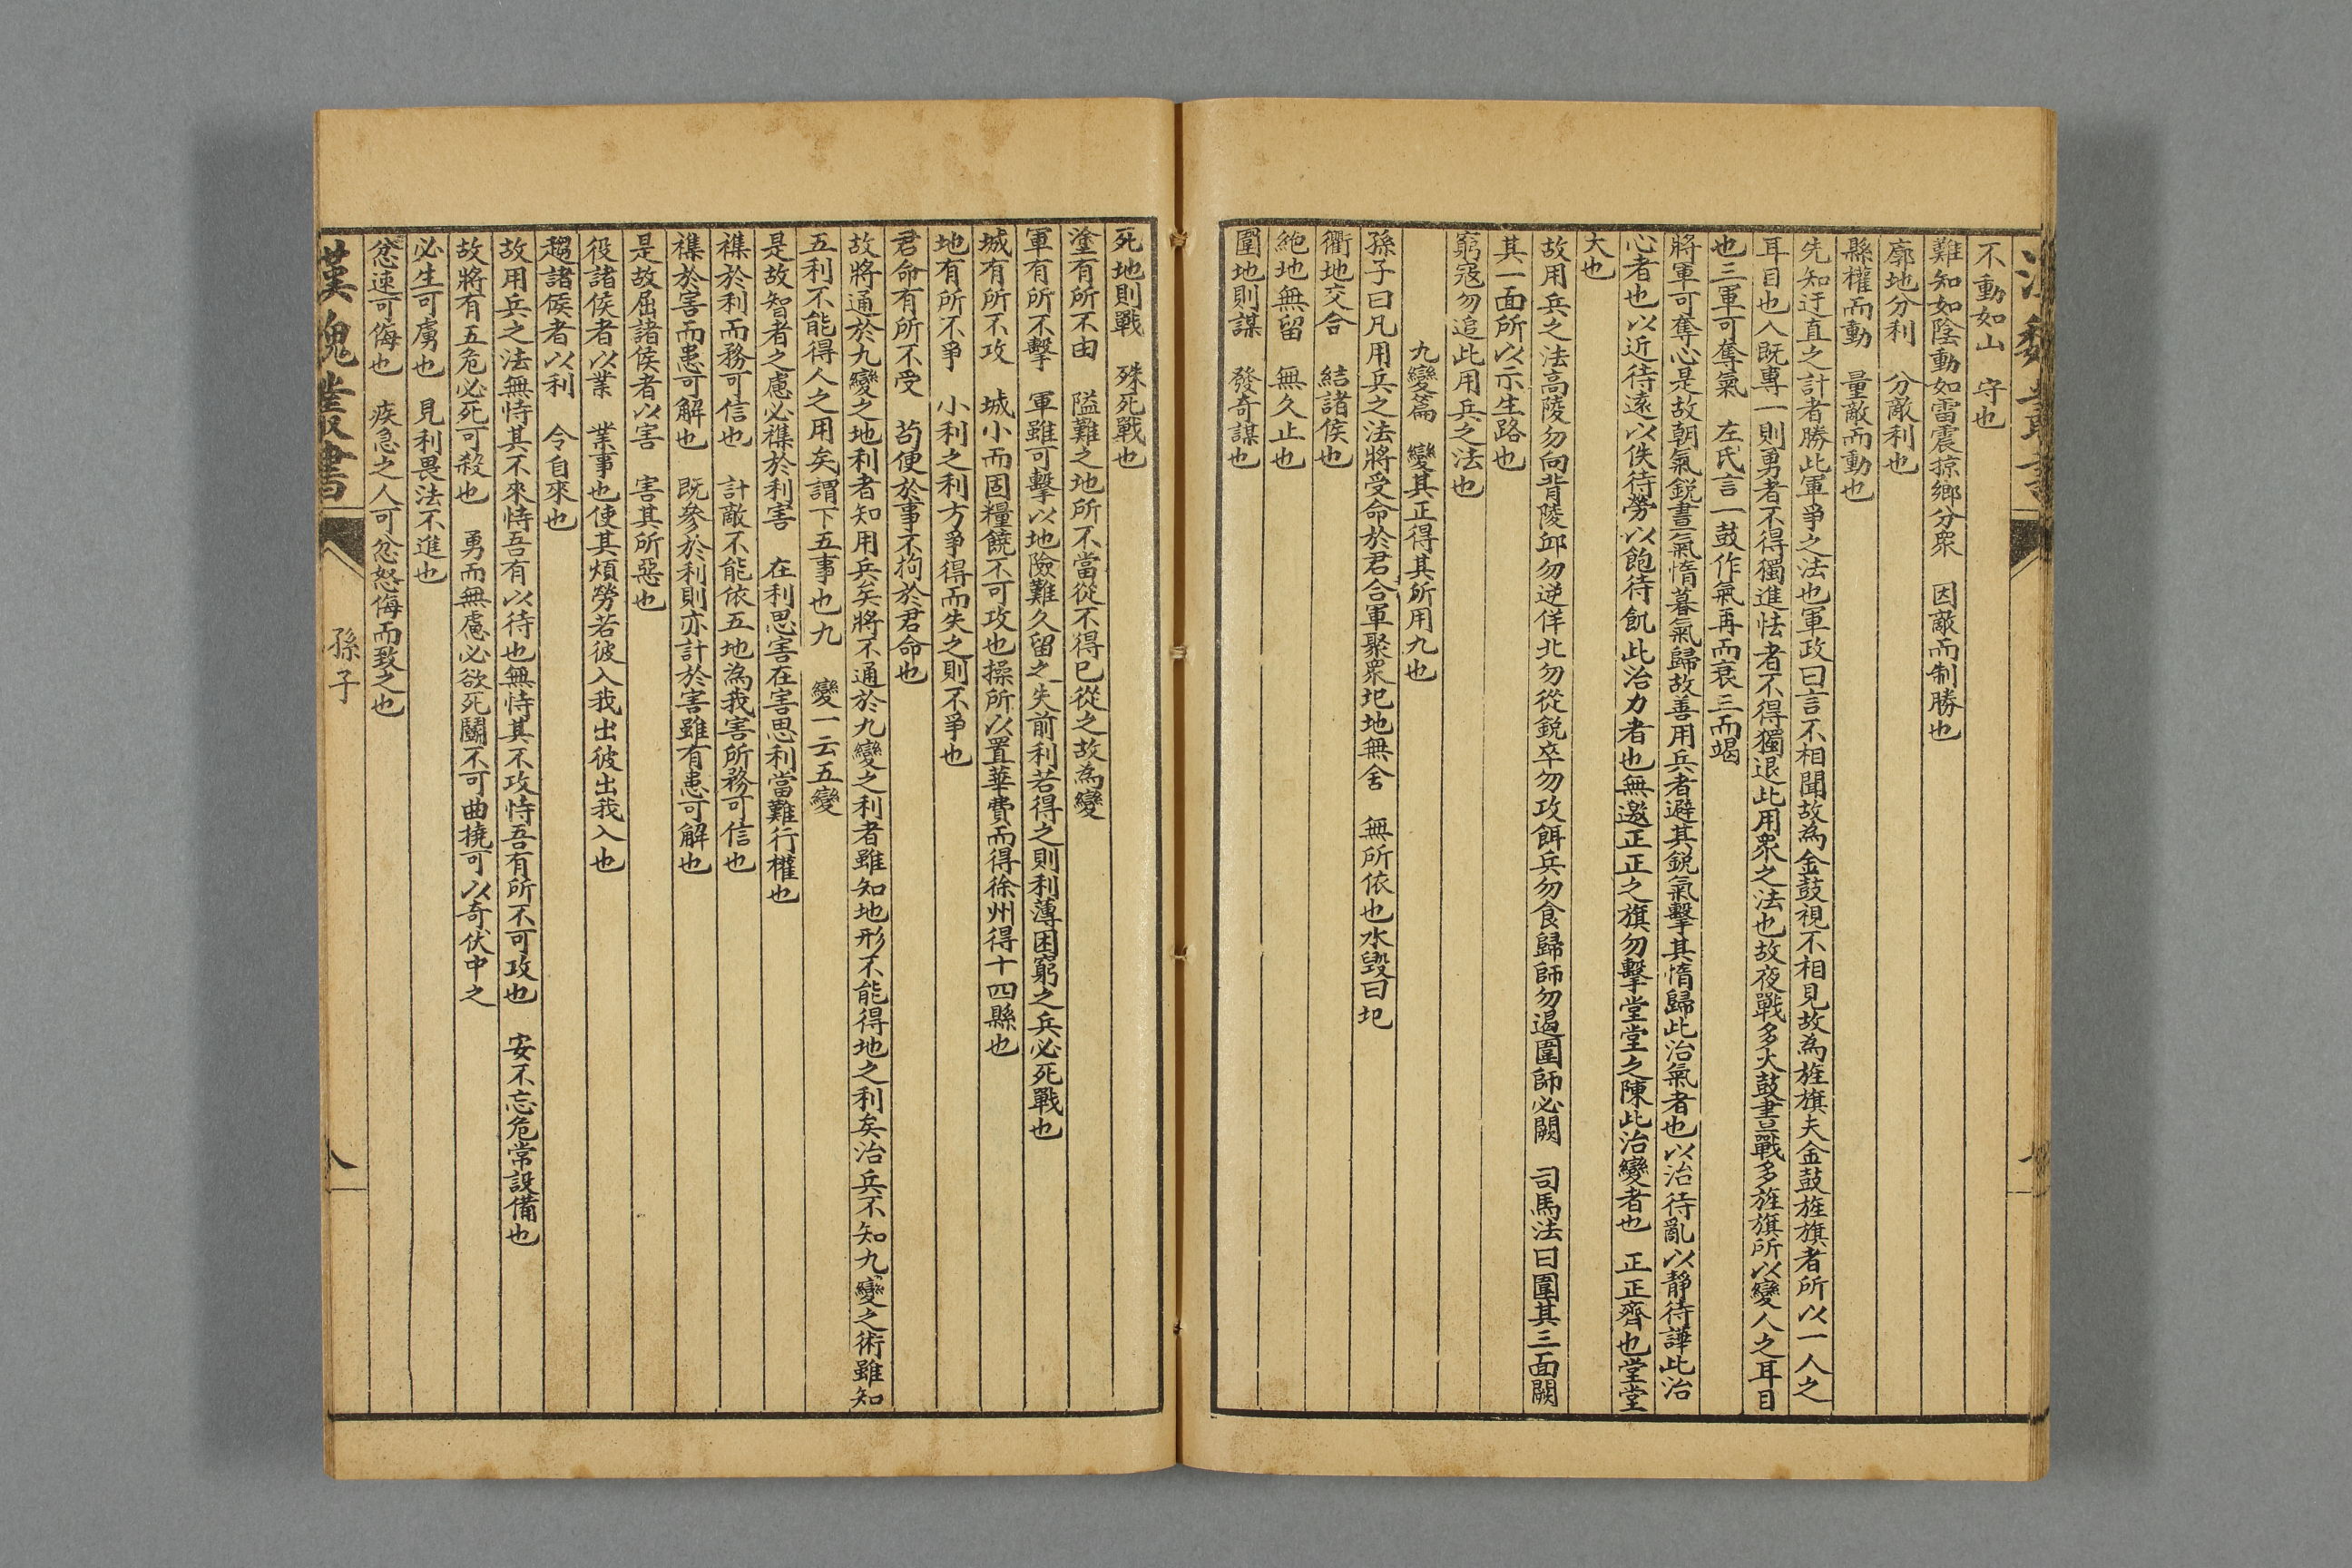 不動如山　守也
難知如陰動如雷震掠鄉分衆　因敵而制勝也
廓地分利　分敵利也
縣權而動　量敵而動也
先知迂直之計者勝此軍爭之法也軍政曰言不相聞故為金鼓視不相見故為旌旗夫金鼓旌旗者所以一人之
耳目也人既專一則勇者不得獨進怯者不得獨退此用衆之法也故夜戰多火鼓晝戰多旌旗所以變人之耳目
也三軍可奪氣　左氏言一鼓作氣再而衰三而竭
將軍可奪心是故朝氣銳晝氣惰暮氣歸故善用兵者避其銳氣擊其惰歸此治氣者也以治待亂以靜待譁此治
心者也以近待遠以佚待勞以飽待飢此治力者也無邀正正之旗勿擊堂堂之陳此治變者也　正正齊也堂堂
大也
故用兵之法高陵勿向背陵邱勿逆佯北勿從銳卒勿攻餌兵勿食歸師勿遏圍師必闕　司馬法曰圍其三面闕
其一面所以示生路也
窮寇勿追此用兵之法也
九變篇　變其正得其所用九也
孫子曰凡用兵之法將受命於君合軍聚衆圯地無舍　無所依也水毀曰圯
衢地交合　結諸侯也
絶地無留　無久止也
圍地則謀　發奇謀也
死地則戰　殊死戰也
塗有所不由　隘難之地所不當從不得已從之故為變
軍有所不擊　軍雖可擊以地險難久留之失前利若得之則利薄困窮之兵必死戰也
城有所不攻　城小而固糧饒不可攻也操所以置華費而得徐州得十四縣也
地有所不爭　小利之利方爭得而失之則不爭也
君命有所不受　苟便於事不拘於君命也
故將通於九變之地利者知用兵矣將不通於九變之利者雖知地形不能得地之利矣治兵不知九變之術雖知
五利不能得人之用矣謂下五事也九　變一云五變
是故智者之慮必襍於利害　在利思害在害思利當難行權也
襍於利而務可信也　計敵不能依五地為我害所務可信也
襍於害而患可解也　既參於利則亦計於害雖有患可解也
是故屈諸侯者以害　害其所惡也
役諸侯者以業　業事也使其煩勞若彼入我出彼出我入也
趨諸侯者以利　令自來也
故用兵之法無恃其不來恃吾有以待也無恃其不攻恃吾有所不可攻也　安不忘危常設備也
故將有五危必死可殺也　勇而無慮必欲死鬭不可曲撓可以奇伏中之
必生可虜也　見利畏法不進也
忿速可侮也　疾急之人可忿怒侮而致之也
漢魏叢書
孫子
八